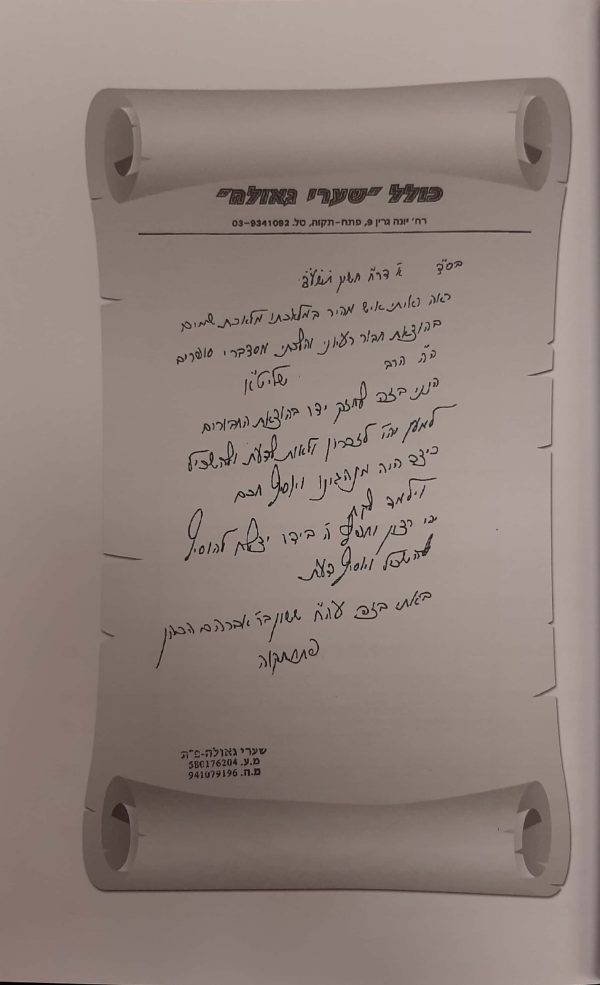 כולל "שערי גאולה"
רח' יונה גרין 9, פתח-תקוה, טל. 03-9341092
בס"ד א' דר"ח חשון תשע"ג
ראה ראיתי איש מהיר במלאכתו מלאכת שמים
בהוצאת חבור רעיוני והלכתי מסדברי סופרים
ה"ה הרב שליט"א
הנני בזה לחזק ידו בהוצאת החבורים
למען יהיו לזכרון ולאות לדעת ולהשכיל
כיצד היה מנהגינו ויוסיף חכם
וילמד לקח
יהי רצון וחפץ ה' בידו יצלח להוסיף
להשכיל ויוסיף דעת
באתי בזה עה"ח ששון בר' אברהם הכהן
פתח תקוה
שערי גאולה-פ"ת
מ.ע. 580176204
מ.ח. 941079196